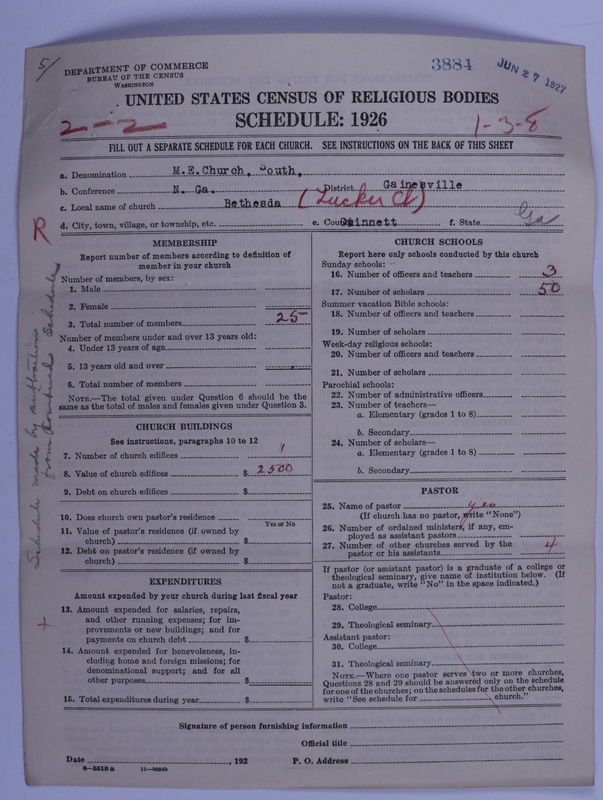 5/
DEPARTMENT OF COMMERCE
BUREAU OF THE CENSUS
WASHINGTON
3884
JUN 27 1927
UNITED STATES CENSUS OF RELIGIOUS BODIES
SCHEDULE: 1926
2-2
1-3-8
FILL OUT A SEPARATE SCHEDULE FOR EACH CHURCH. SEE INSTRUCTIONS ON THE BACK OF THIS SHEET
a. Denomination M.E.Church, South,
b. Conference N. Ga. District Gainesville
c. Local name of church Bethesda (Tucker Ct)
d. City, town, village, or township, etc. e. County Gwinnett f. State Ga
R
Schedule made by
from Schedule
MEMBERSHIP
Report number of members according to definition of
member in your church
Number of members, by sex:
1. Male
2. Female
3. Total number of members 25
Number of members under and over 13 years old:
4. Under 13 years of age
5. 13 years old and over
6. Total number of members
NOTE.—The total given under Question 6 should be the
same as the total of males and females given under Question 3.
CHURCH BUILDINGS
See instructions, paragraphs 10 to 12
7. Number of church edifices 1
8. Value of church edifices $ 2500
9. Debt on church edifices $
10. Does church own pastor's residence
Yes or No
11. Value of pastor's residence (if owned by
church) $
12. Debt on pastor's residence (if owned by
church) $
EXPENDITURES
Amount expended by your church during last fiscal year
+
13. Amount expended for salaries, repairs,
and other running expenses; for im-
provements or new buildings; and for
payments on church debt $
14. Amount expended for benevolences, in-
cluding home and foreign missions; for
denominational support; and for all
other purposes $
15. Total expenditures during year $
CHURCH SCHOOLS
Report here only schools conducted by this church
Sunday schools:
16. Number of officers and teachers 3
17. Number of scholars 50
Summer vacation Bible schools:
18. Number of officers and teachers
19. Number of scholars
Week-day religious schools:
20. Number of officers and teachers
21. Number of scholars
Parochial schools:
22. Number of administrative officers
23. Number of teachers—
a. Elementary (grades 1 to 8)
b. Secondary
24. Number of scholars—
a. Elementary (grades 1 to 8)
b. Secondary
PASTOR
25. Name of pastor yes
(If church has no pastor, write "None")
26. Number of ordained ministers, if any, em-
ployed as assistant pastors
27. Number of other churches served by the
pastor or his assistants 4
If pastor (or assistant pastor) is a graduate of a college or
theological seminary, give name of institution below. (If
not a graduate, write "No" in the space indicated.)
Pastor:
28. College
29. Theological seminary
Assistant pastor:
30. College
31. Theological seminary
NOTE.—Where one pastor serves two or more churches,
Questions 28 and 29 should be answered only on the schedule
for one of the churches; on the schedules for the other churches,
write "See schedule for church."
Signature of person furnishing information
Official title
Date , 192 P. O. Address